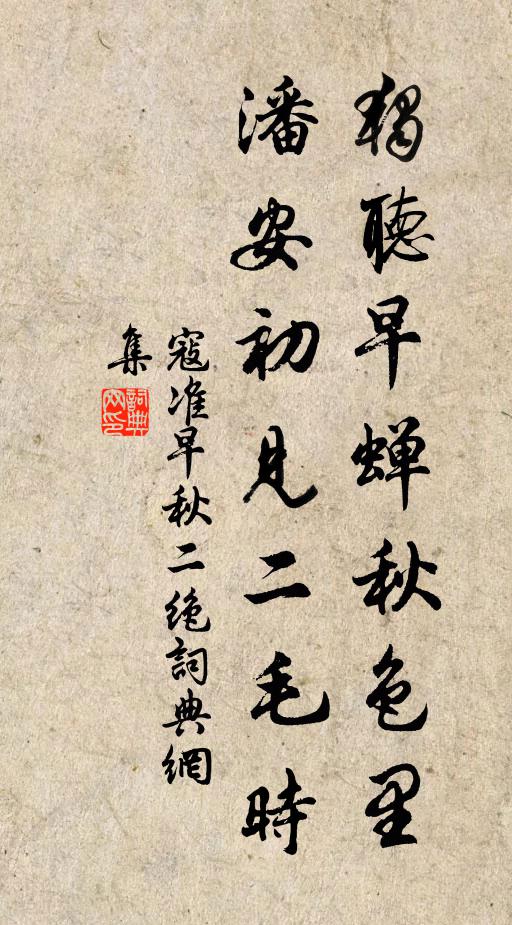 獨聽早蟬秋色里
潘安初見二毛時
寇准早秋二絕詞典網
集
詞典
网印